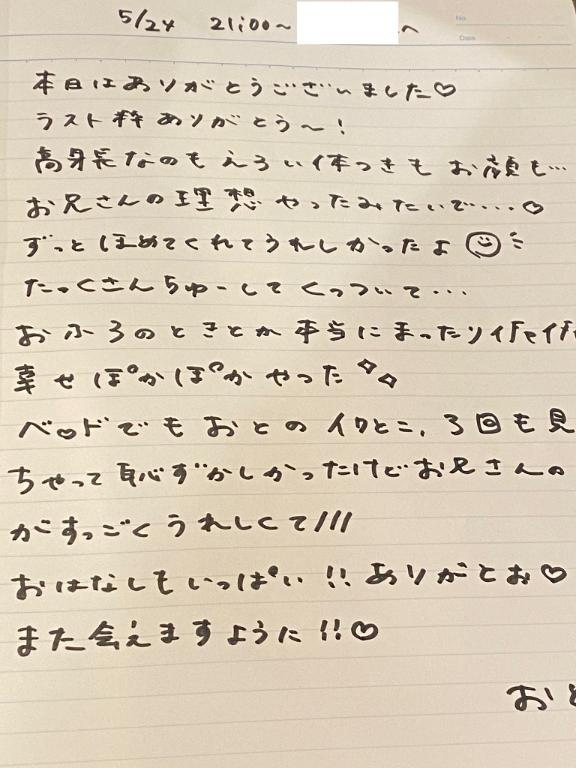 No.
Date
5/24 21:00〜 へ
本日はありがとうございました♡
ラスト枠ありがとう〜!
高身長なのもえろい体つきもお顔も…
お兄さんの理想やったみたいで....♡
ずっとほめてくれてうれしかったよ
たっくさんちゅーしてくっついて...
おふろのときとか本当にまったりイチャイチャ
幸せぽかぽかやった
ベッドでもおとのイクとこ、3回も見
ちゃって恥ずかしかったけどお兄さんの
がすっごくうれしくて///
おはなしもいっぱい!!ありがとお♡
また会えますように!!♡
おと